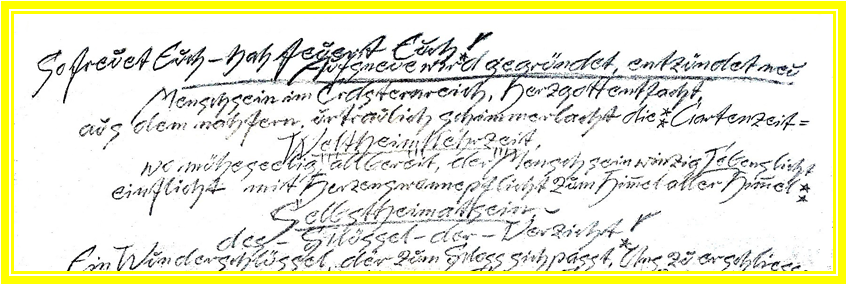 So freuet Euch – nah feuert Euch!
Aufsneue wird gegründet, entzündet neu
Menschsein im Erdsternreich, Herzgottentfacht,
aus dem nahfern, urtraulich schimmerlacht die Gartenzeit=
Weltheimkehrzeit,
wo müheseelig allbereit, der Mensch sein winzig Lebenslicht
einflicht mit Herzenswonnepflicht zum Himel aller Himel
Selbstheimatsein,
des – Schlössel – der – Verzicht!
Ein Wunderschlüssel, der zum Schloss sich passt, Uns zu erschliessen